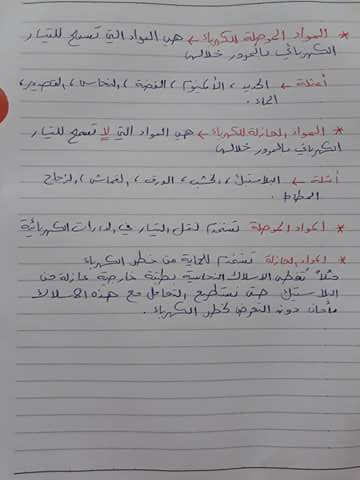 * المواد الموصلة للكهرباء ← هي المواد التي تسمح للتيار
الكهربائي بالمرور خلالها
أمثلة ← الحديد، الألمنيوم، الفضة، النحاس، القصدير،
الماء.
* المواد العازلة للكهرباء ← هي المواد التي لا تسمح للتيار
الكهربائي بالمرور خلالها
أمثلة ← البلاستيك، الخشب، الورق، القماش، الزجاج
المطاط.
* المواد الموصلة تستخدم لنقل التيار في الدارات الكهربائية
* المواد العازلة تستخدم للحماية من خطر الكهرباء
مثلاً تُغطى الاسلاك النحاسية بطبقة خارجية عازلة من
البلاستيك حتى نستطيع التعامل مع هذه الاسلاك
بأمان دون التعرض لخطر الكهرباء.